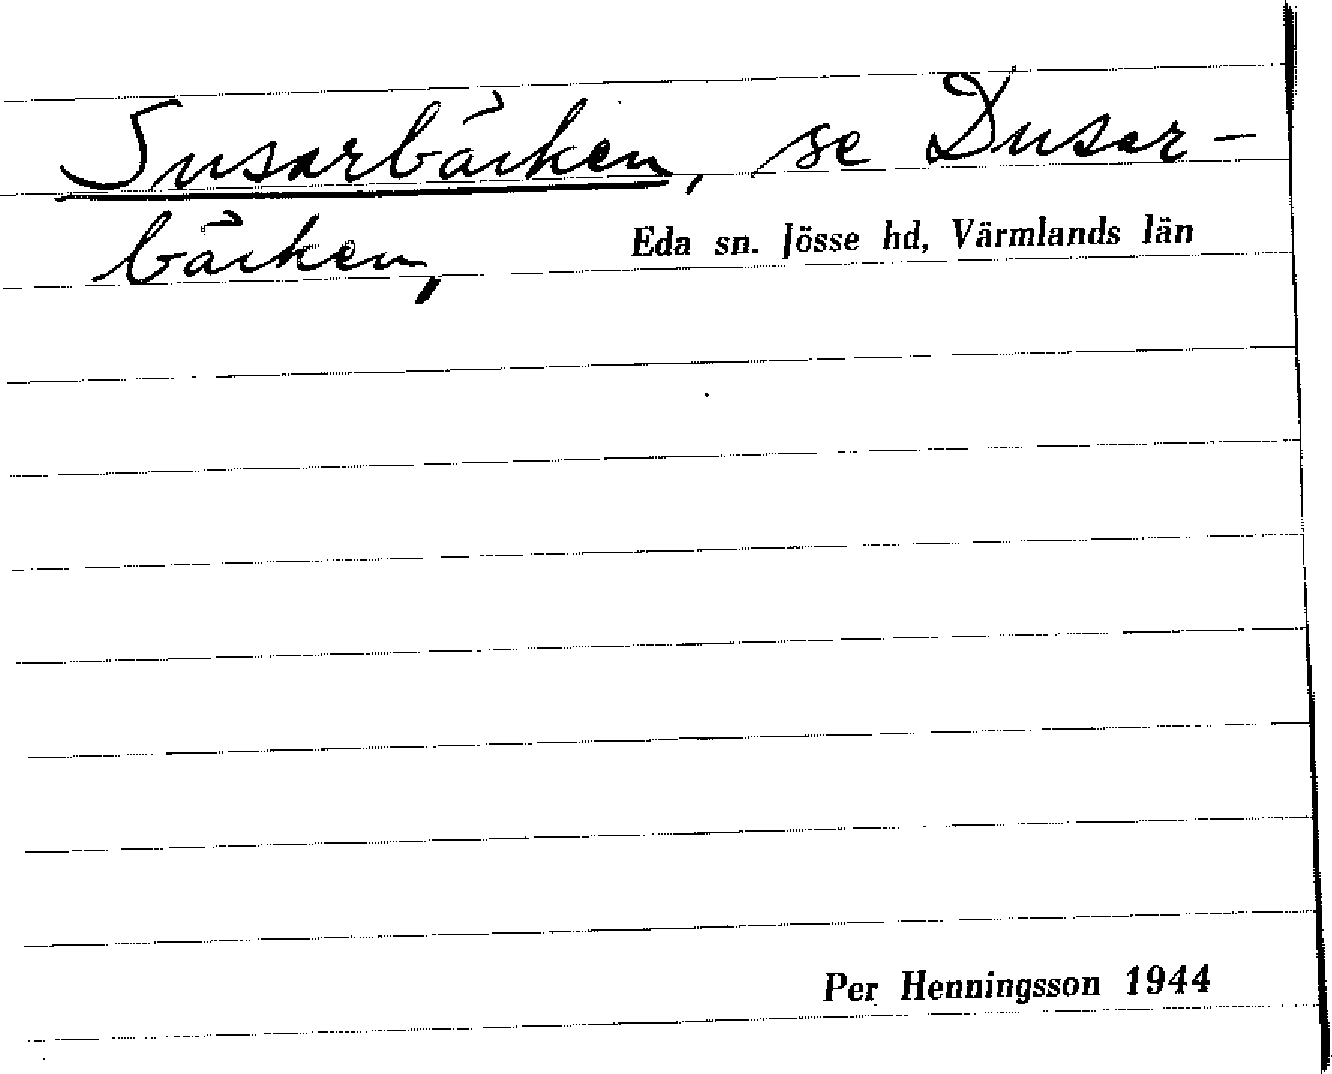 Susarbäcken, se Dusar-
bäcken, Eda sn. Jösse hd, Värmlands län
Per Henningsson 1944